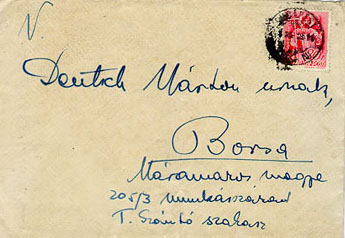 N
Deutsch Márton urnak,
Borsa
Máramaros megye
205/3 munkásszázad
T. Szántó szakasz